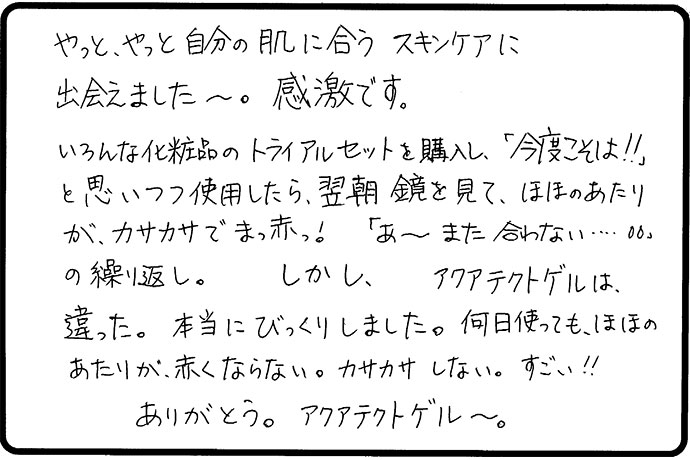 やっと、やっと自分の肌に合う スキンケアに
出会えました〜。感激です。
いろんな化粧品のトライアルセットを購入し、「今度こそは!!」
と思いつつ使用したら、翌朝 鏡を見て、ほほのあたり
が、カサカサで まっ赤っ! 「あ〜 また 合わない……。。」
の繰り返し。 しかし、 アクアテクトゲルは、
違った。 本当に びっくりしました。何日使っても、ほほの
あたりが、赤くならない。カサカサ しない。すごい!!
ありがとう。 アクアテクトゲル〜。